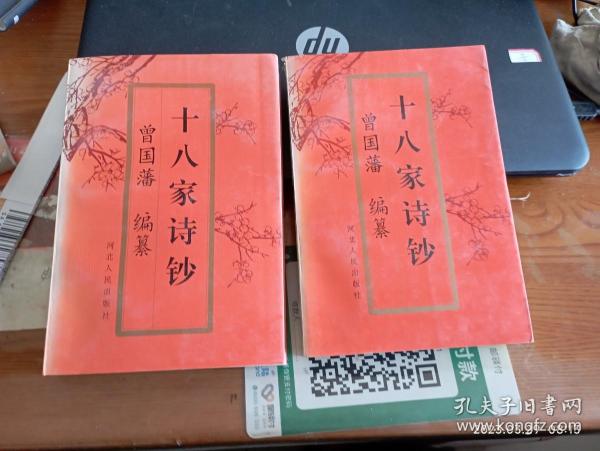 hp
十八家诗钞
曾国藩 编纂
河北人民出版社
十八家诗钞
曾国藩 编纂
河北人民出版社
付款
孔夫子旧书网
www.kongfz.com